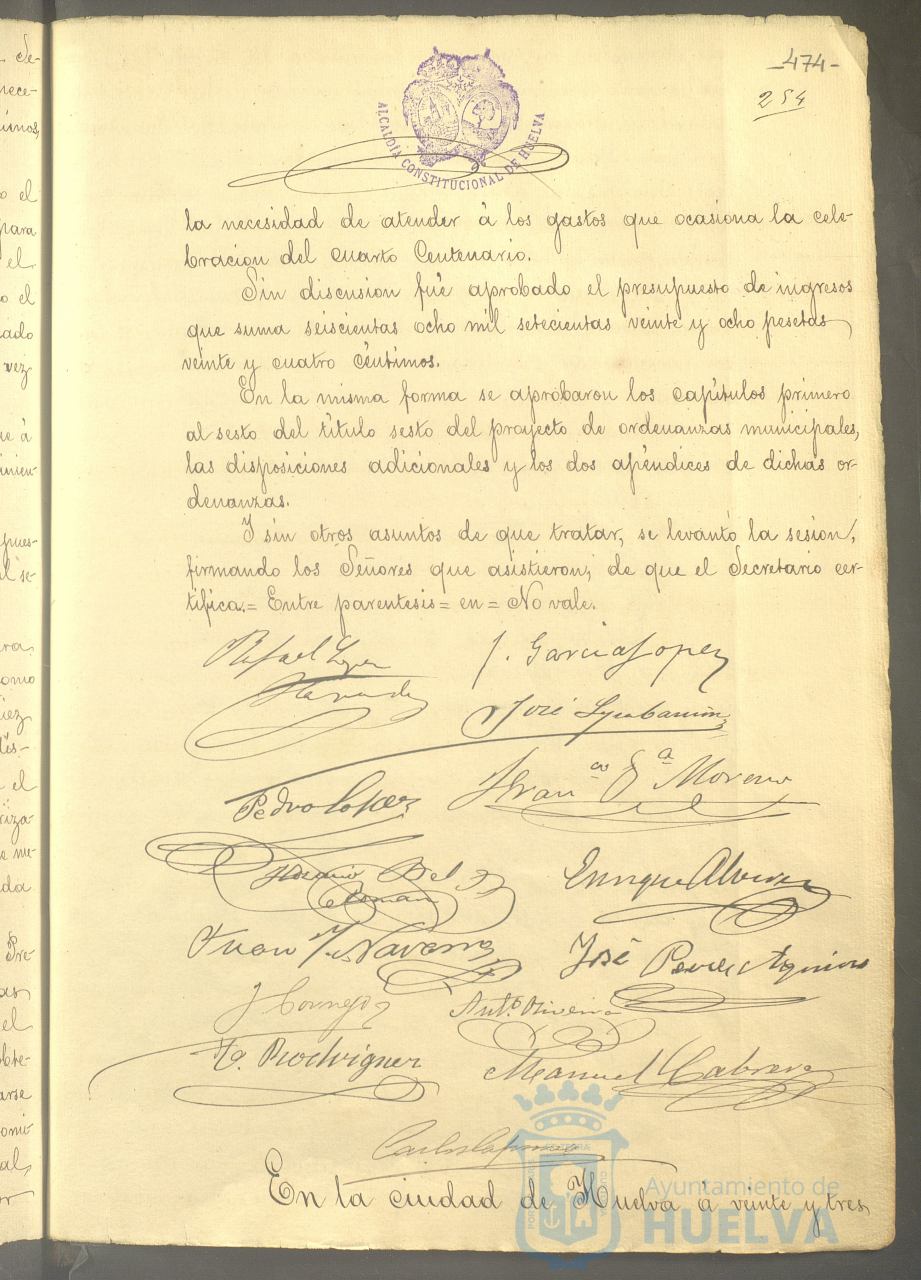 -474-
254
ALCALDÍA CONSTITUCIONAL DE HUELVA
la necesidad de atender á los gastos que ocasiona la cele-
bracion del cuarto Centenario.
Sin discusion fué aprobado el presupuesto de ingresos
que suma seiscientas ocho mil setecientas veinte y ocho pesetas
veinte y cuatro céntimos.
En la misma forma se aprobaron los capítulos primero
al sesto del título sesto del proyecto de ordenanzas municipales,
las disposiciones adicionales y los dos apéndices de dichas or-
denanzas.
Y sin otros asuntos de que tratar, se levantó la sesión,
firmando los Señores que asistieron; de que el Secretario cer-
tifica.= Entre parentesis = en = No vale.
Rafael
J. Garcia Lopez
José
Pedro Lopez
Fran.co G.a Moreno
Enrique
Juan Navarro
José Perez
J Cornejo
Ant.o Oliveira
Rodriguez
Manuel Cabrera
Carlos
En la ciudad de Huelva á veinte y tres
Ayuntamiento de
HUELVA